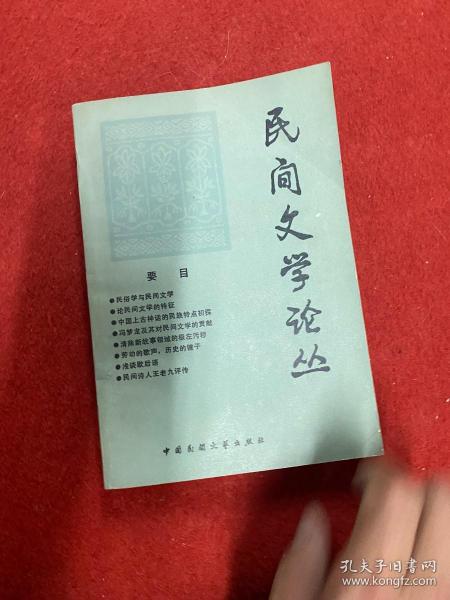 民间文学论丛
要目
●民俗学与民间文学
●论民间文学的特征
●中国上古神话的民族特点初探
●冯梦龙及其对民间文学的贡献
●清除新故事领域的极左污秽
●劳动的歌声,历史的镜子
●浅谈歇后语
●民间诗人王老九评传
中国民间文艺出版社
孔夫子旧书网
www.kongfz.com